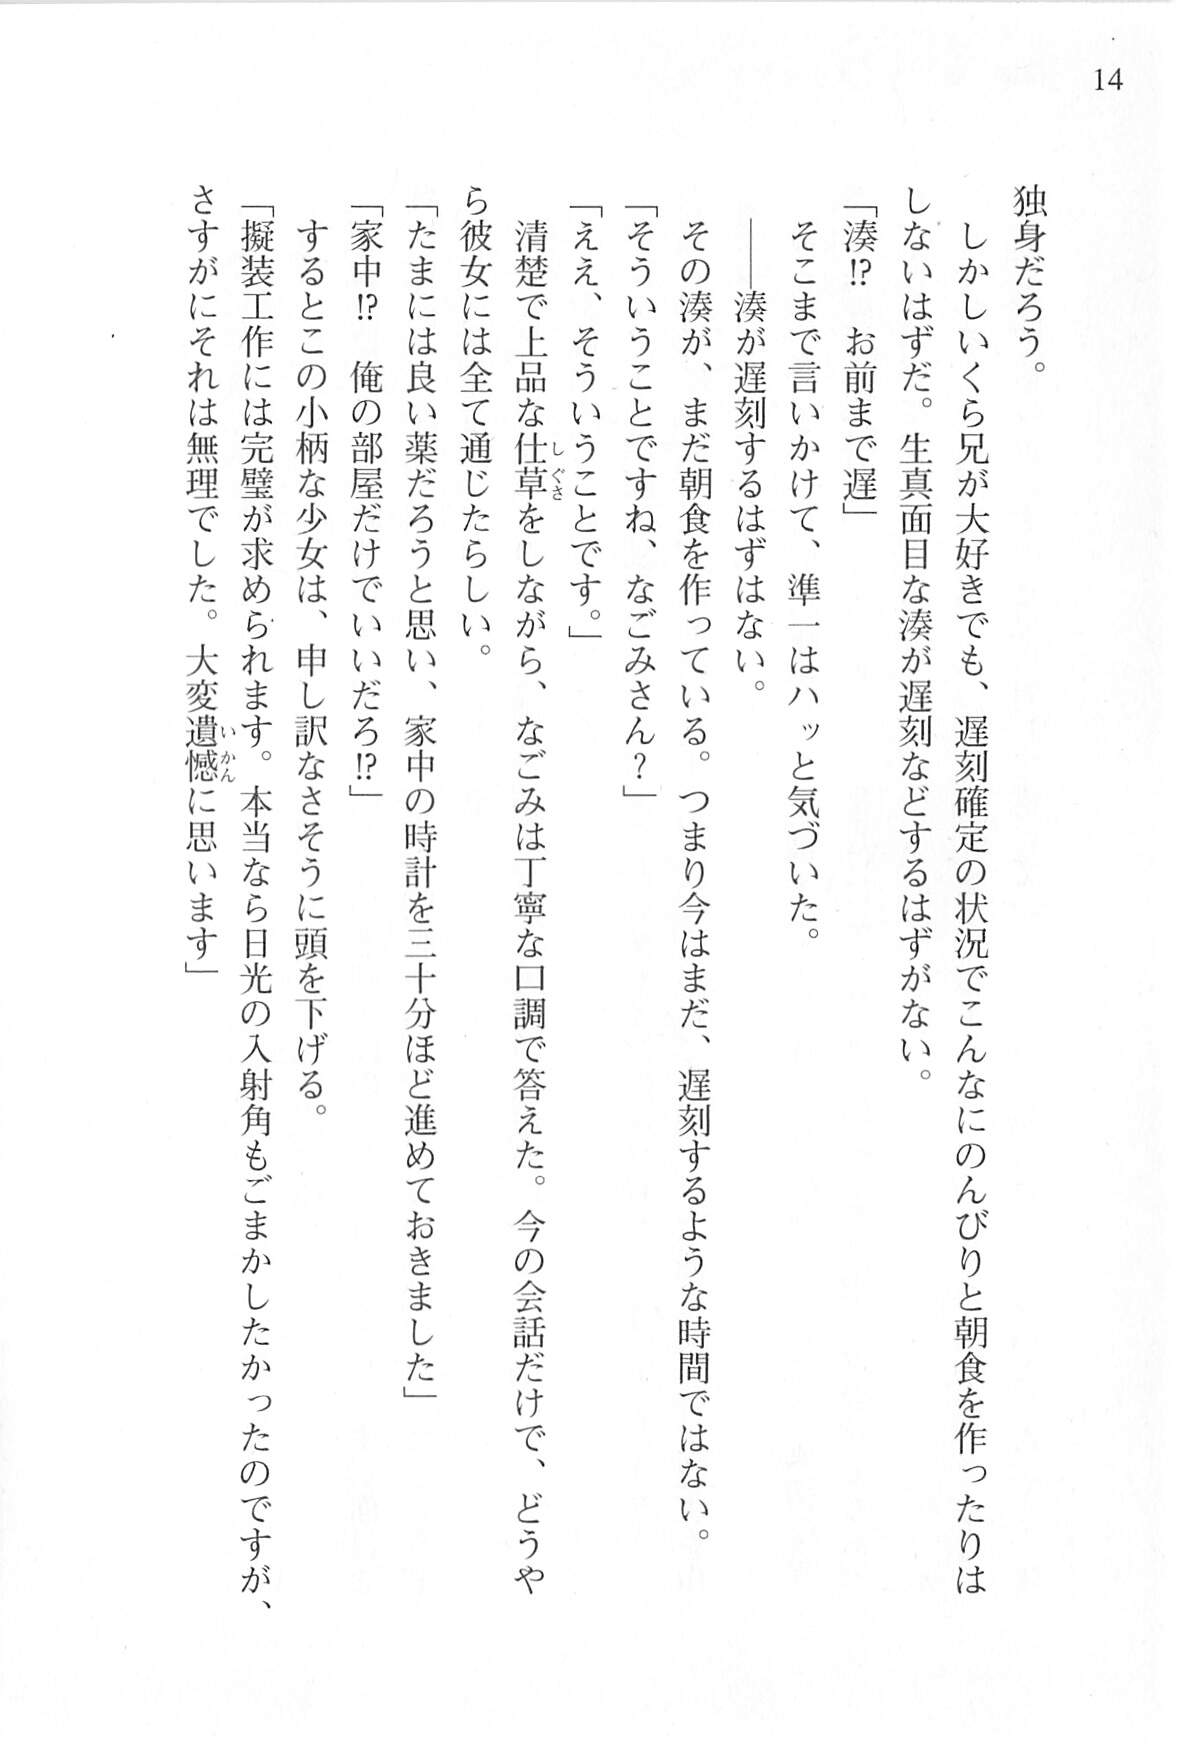 14
独身だろう。
　しかしいくら兄が大好きでも、遅刻確定の状況でこんなにのんびりと朝食を作ったりは
しないはずだ。生真面目な湊が遅刻などするはずがない。
「湊!?　お前まで遅」
　そこまで言いかけて、準一はハッと気づいた。
　――湊が遅刻するはずはない。
　その湊が、まだ朝食を作っている。つまり今はまだ、遅刻するような時間ではない。
「そういうことですね、なごみさん？」
「ええ、そういうことです。」
　清楚で上品な仕草をしながら、なごみは丁寧な口調で答えた。今の会話だけで、どうや
ら彼女には全て通じたらしい。
「たまには良い薬だろうと思い、家中の時計を三十分ほど進めておきました」
「家中!?　俺の部屋だけでいいだろ!?」
　するとこの小柄な少女は、申し訳なさそうに頭を下げる。
「擬装工作には完璧が求められます。本当なら日光の入射角もごまかしたかったのですが、
さすがにそれは無理でした。大変遺憾に思います」